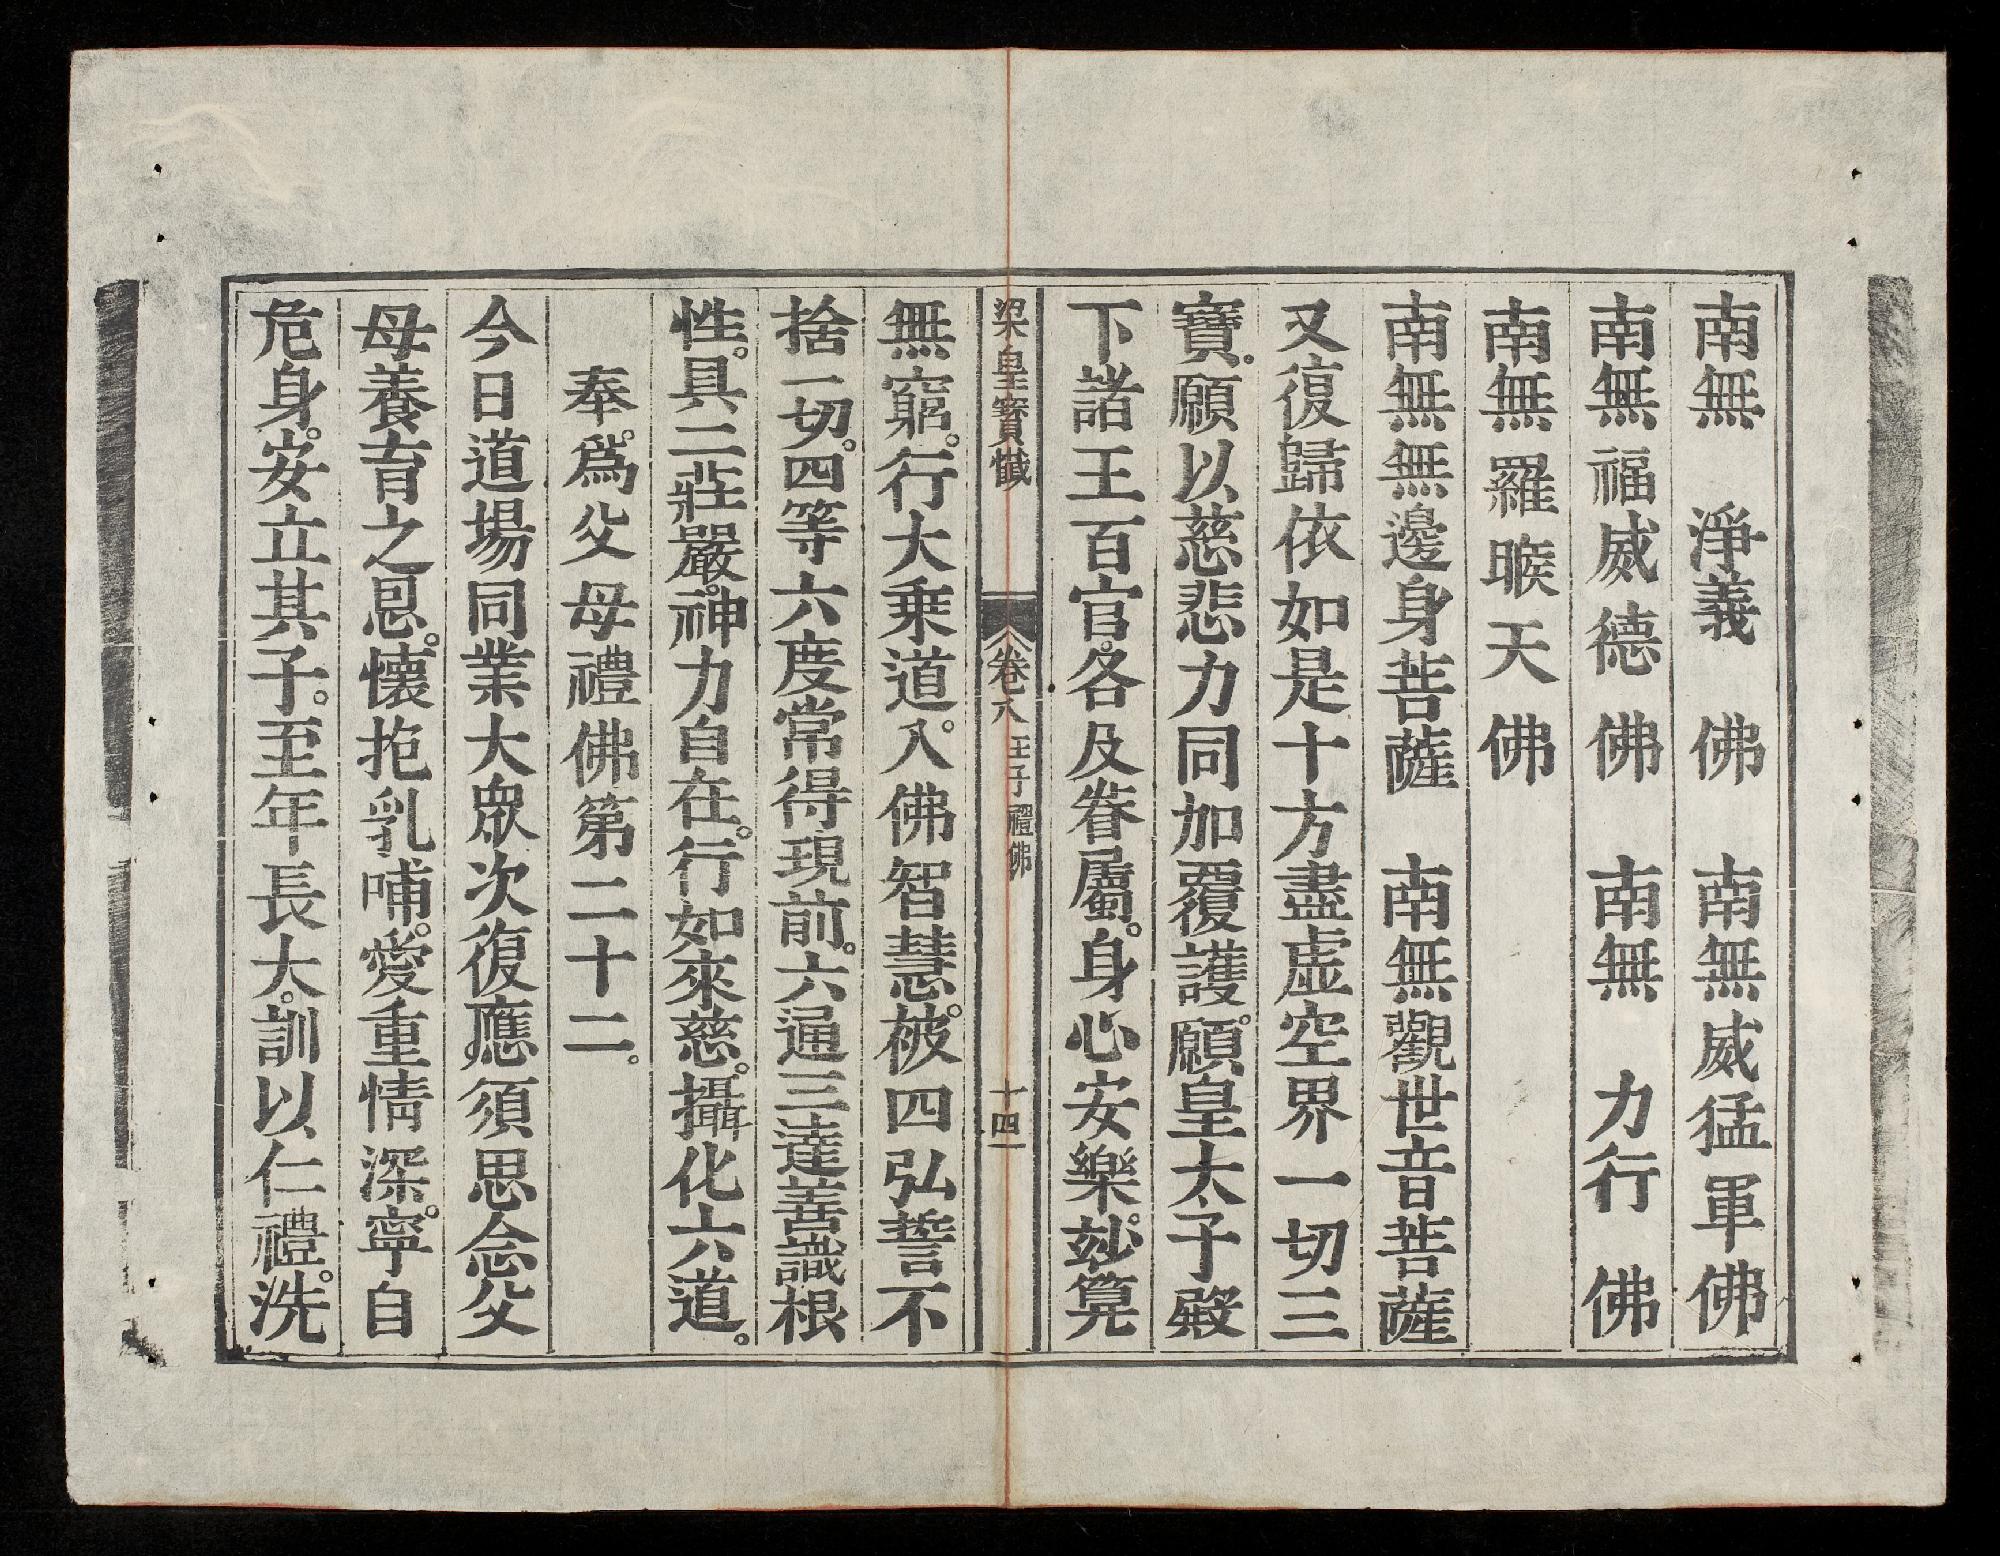 南無　淨義　佛　南無威猛軍佛
南無福威德　佛　南無　力行　佛
南無羅睺天　佛
南無無邊身菩薩　南無觀世音菩薩
又復歸依如是十方盡虛空界一切三
寶。願以慈悲力同加覆護。願皇太子殿
下諸王百官。各及眷屬。身心安樂。玅筭
梁皇寶懺　卷八　王子禮佛　十四
無窮。行大乗道。入佛智慧。被四弘誓不
捨一切。四等六度常得現前。六通三達善識根
性。具二莊嚴。神力自在。行如來慈。攝化六道。
奉爲父母禮佛第二十二。
今日道場同業大眾次復應須思念父
母養育之恩。懷抱乳哺。愛重情深。寧自
危身。安立其子。至年長大。訓以仁禮。洗